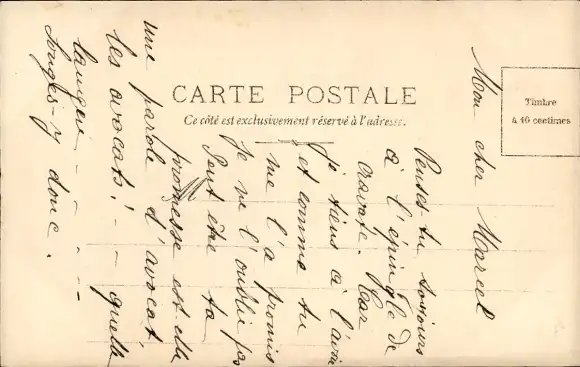 CARTE POSTALE
Ce côté est exclusivement réservé à l'adresse.
Timbre
à 10 centimes
Mon cher Marcel
Penses-tu toujours
à l'épingle de
cravate.
Je tiens à l'avoir
et comme tu
me l'a promis
je ne l'oublie pas
Peut être ta
promesse est elle
une parole d'avocat
les avocats! - - quelle
langue - - - - -
Songes-y donc.